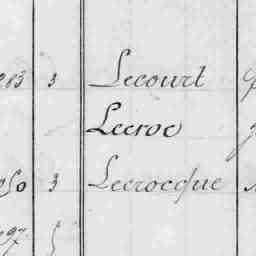 283 3 Lecourt
Lecroc
250 3 Lecrocque
97